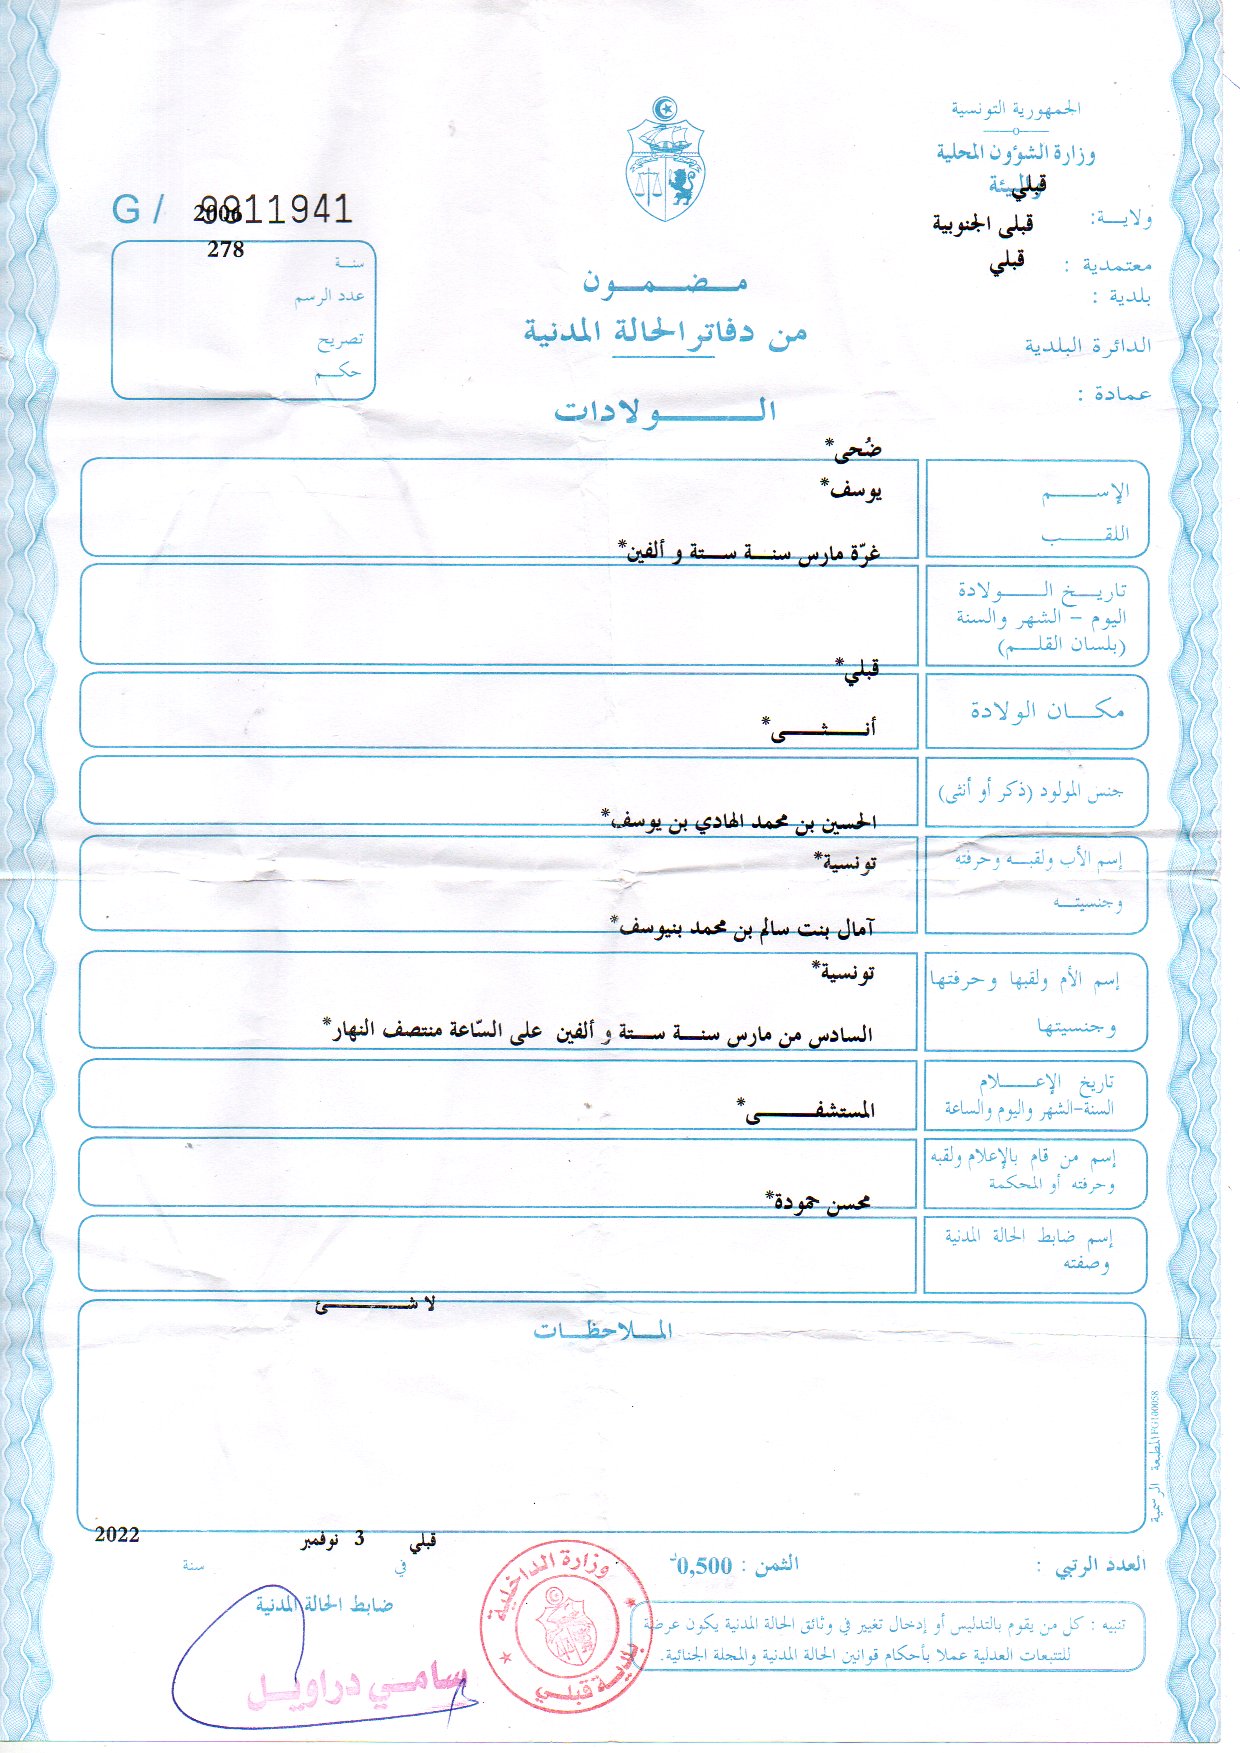 الجمهورية التونسية
وزارة الشؤون المحلية
والبيئة
قبلي
ولايـــة:
قبلى الجنوبية
معتمدية :
قبلي
بلدية :
الدائرة البلدية
عمادة :
G / 9911941
2006
278
سنـــة
عدد الرسم
تصريح
حكـــم
مـــضـــمـــون
من دفاتر الحالة المدنية
الـــــولادات
ضُحى*
الإســـــم
يوسف*
اللقـــــب
غرّة مارس سنـــة ستـــة و ألفين*
تاريـــخ الـــــولادة
اليوم - الشهر والسنة
(بلسان القلـــم)
قبلي*
مكـــان الولادة
أنـــــثـــــى*
جنس المولود (ذكر أو أنثى)
الحسين بن محمد الهادي بن يوسف*
إسم الأب ولقبـــه وحرفته
تونسية*
وجنسيتـــه
آمال بنت سالم بن محمد بنيوسف*
إسم الأم ولقبها وحرفتها
تونسية*
وجنسيتها
السادس من مارس سنـــة ستـــة و ألفين على السّاعة منتصف النهار*
تاريخ الإعـــــلام
السنة-الشهر واليوم والساعة
المستشفـــــى*
إسم من قام بالإعلام ولقبه
وحرفته أو المحكمة
محسن حمودة*
إسم ضابط الحالة المدنية
وصفته
لا شـــــــئ
المـــلاحظـــات
المطبعة الرسمية IFG100058
قبلي 3 نوفمبر 2022
العدد الرتبي :
الثمن : 0,500د
في
سنة
ضابط الحالة المدنية
تنبيه : كل من يقوم بالتدليس أو إدخال تغيير في وثائق الحالة المدنية يكون عرضة
للتتبعات العدلية عملا بأحكام قوانين الحالة المدنية والمجلة الجنائية.
وزارة الداخلية
بلدية قبلي
سامي دراويل